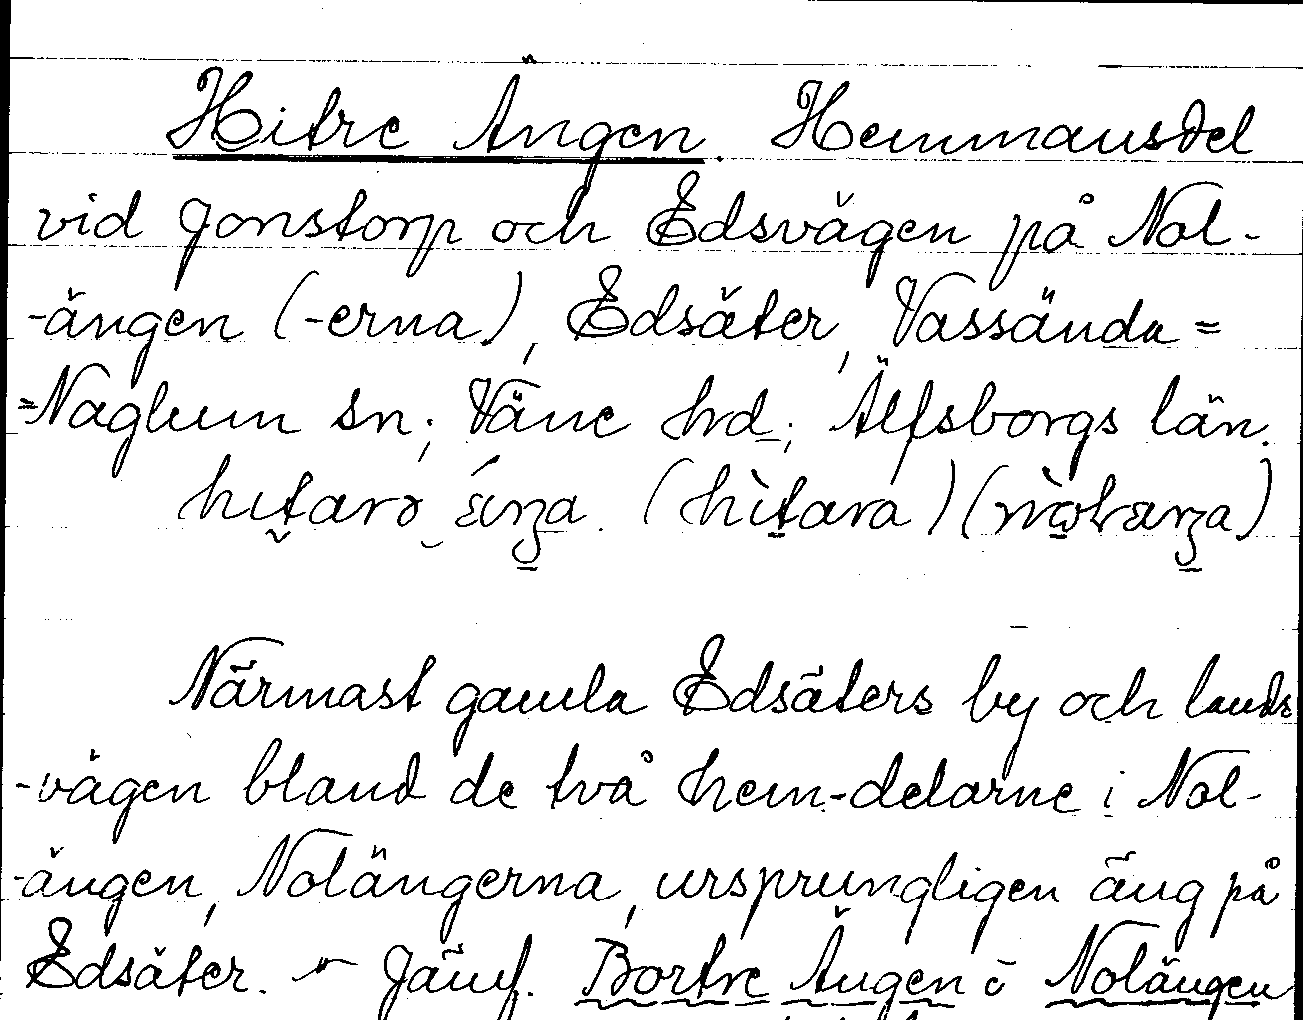 Hitre Ängen. Hemmansdel
vid Jonstorp och Edsvägen på Nol-
-ängen (-erna), Edsäter, Vassända=
=Naglum sn; Väne hrd; Älfsborgs län.
Närmast gamla Edsäters by och lands
-vägen bland de två hem-delarne i Nol-
-ängen, Nolängerna, ursprungligen äng på
Edsäter. Jämf. Bortre Ängen o Nolängen